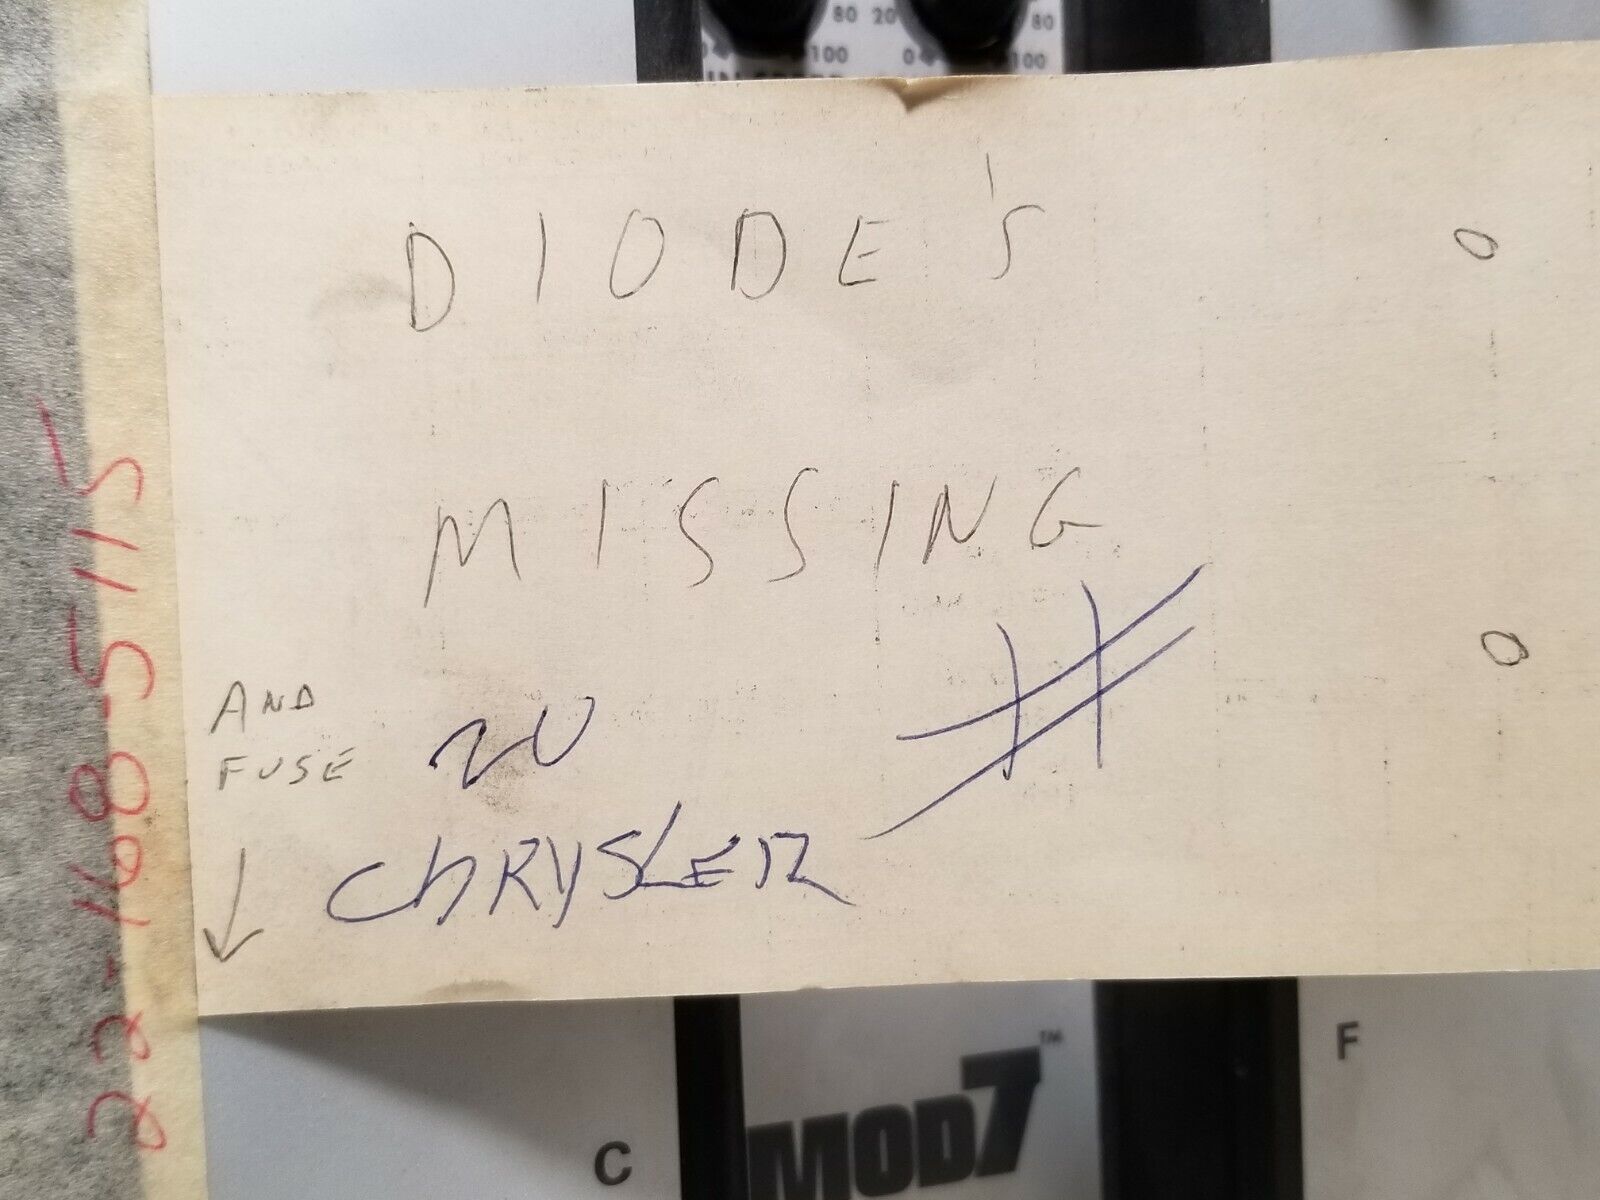 80 20 80
0 100 0 100
DIODE'S
MISSING
AND
FUSE
20
CHRYSLER
#
22-168-5115
F
MOD7™
C